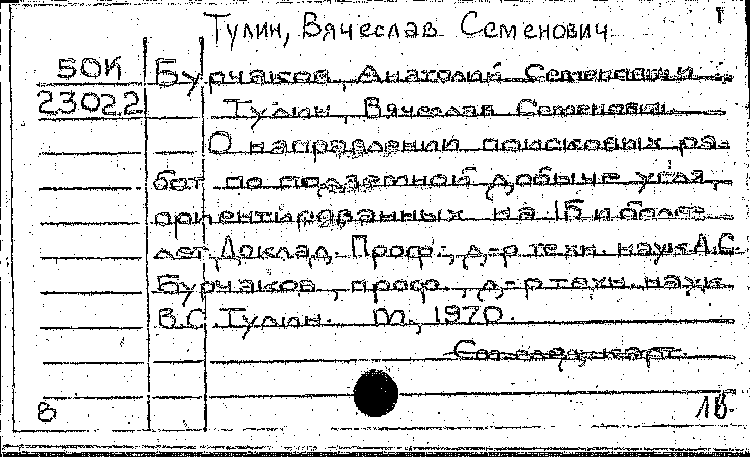 Тулин, Вячеслав Семенович.
50К Бурчаков, Анатолий Семенович и
23022 Тулин, Вячеслав Семенович.
О направлении поисковых ра-
бот по подземной добыче угля,
ориентированных на 15 и более
лет. Доклад. Проф., д-р техн. наук А.С.
Бурчаков, проф., д-р техн. наук
В.С. Тулин. М., 1970.
См. след. карт.
В 1Б.